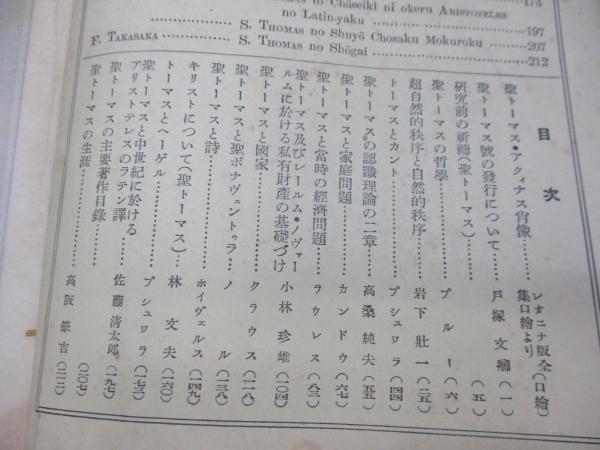 173
to Chūseiki ni okeru ARISTOTELES
no Latin-yaku 197
S. THOMAS no Shuyō Chosaku Mokuroku 207
F. TAKASAKA S. THOMAS no Shōgai 212
目次
聖トーマス・アクィナス肖像 レオニナ版全集口繪より (口繪)
聖トーマス號の發行について 戸塚文卿 (一)
研究前の祈禱(聖トーマス) (五)
聖トーマスの哲學 ブルー (六)
超自然的秩序と自然的秩序 岩下壯一 (二五)
トーマスとカント プシュワラ (四四)
聖トーマスの認識理論の二章 高桑純夫 (五五)
聖トーマスと家庭問題 カンドウ (六七)
聖トーマスと當時の經濟問題 ラウレス (八三)
聖トーマス及びレールム・ノヴァールムに於ける私有財產の基礎づけ 小林珍雄 (一〇四)
聖トーマスと國家 クラウス (一一八)
聖トーマスと聖ボナヴェントゥラ ノル (一三八)
聖トーマスと詩 ホイヴェルス (一四九)
キリストについて(聖トーマス)
トーマスとヘーゲル 林文夫 (一六〇)
聖トーマスと中世紀に於ける プシュワラ (一七三)
アリストテレスのラテン譯 佐藤清太郎 (一九七)
聖トーマスの主要著作目錄 (二〇七)
聖トーマスの生涯 高阪肇吉 (二一二)